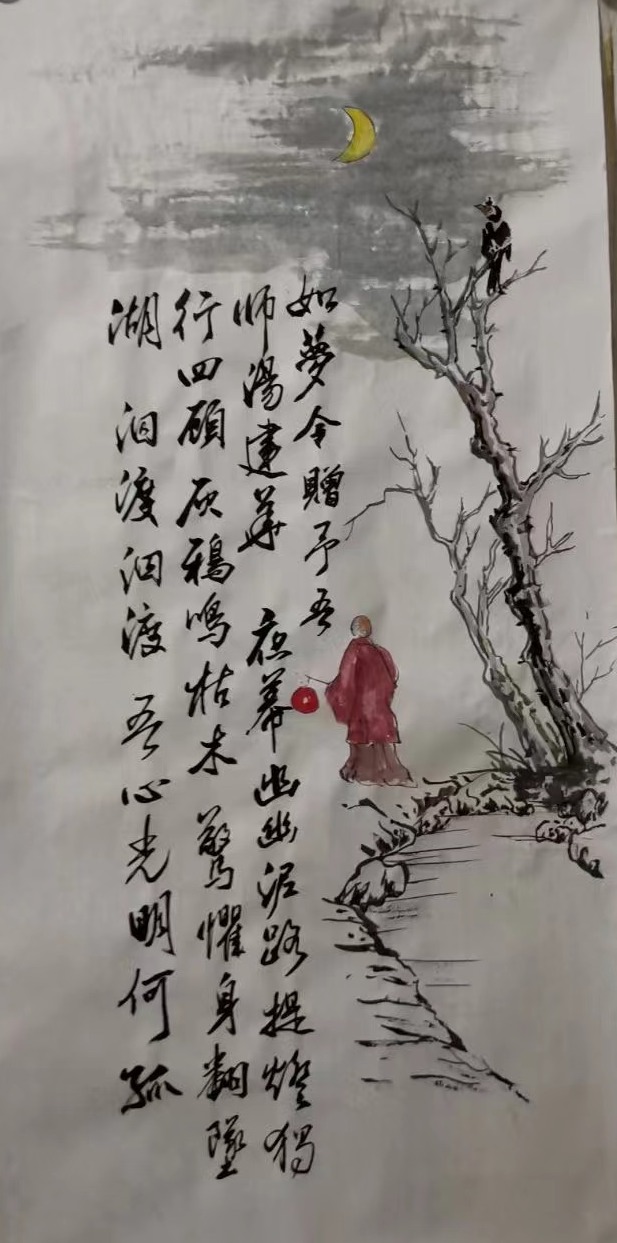 如夢令贈予吾
师湯建華 夜幕幽幽泥路提燈獨
行四顾 灰鴉鳴枯木 驚懼身翻墜
湖 泅渡泅渡 吾心光明何孤